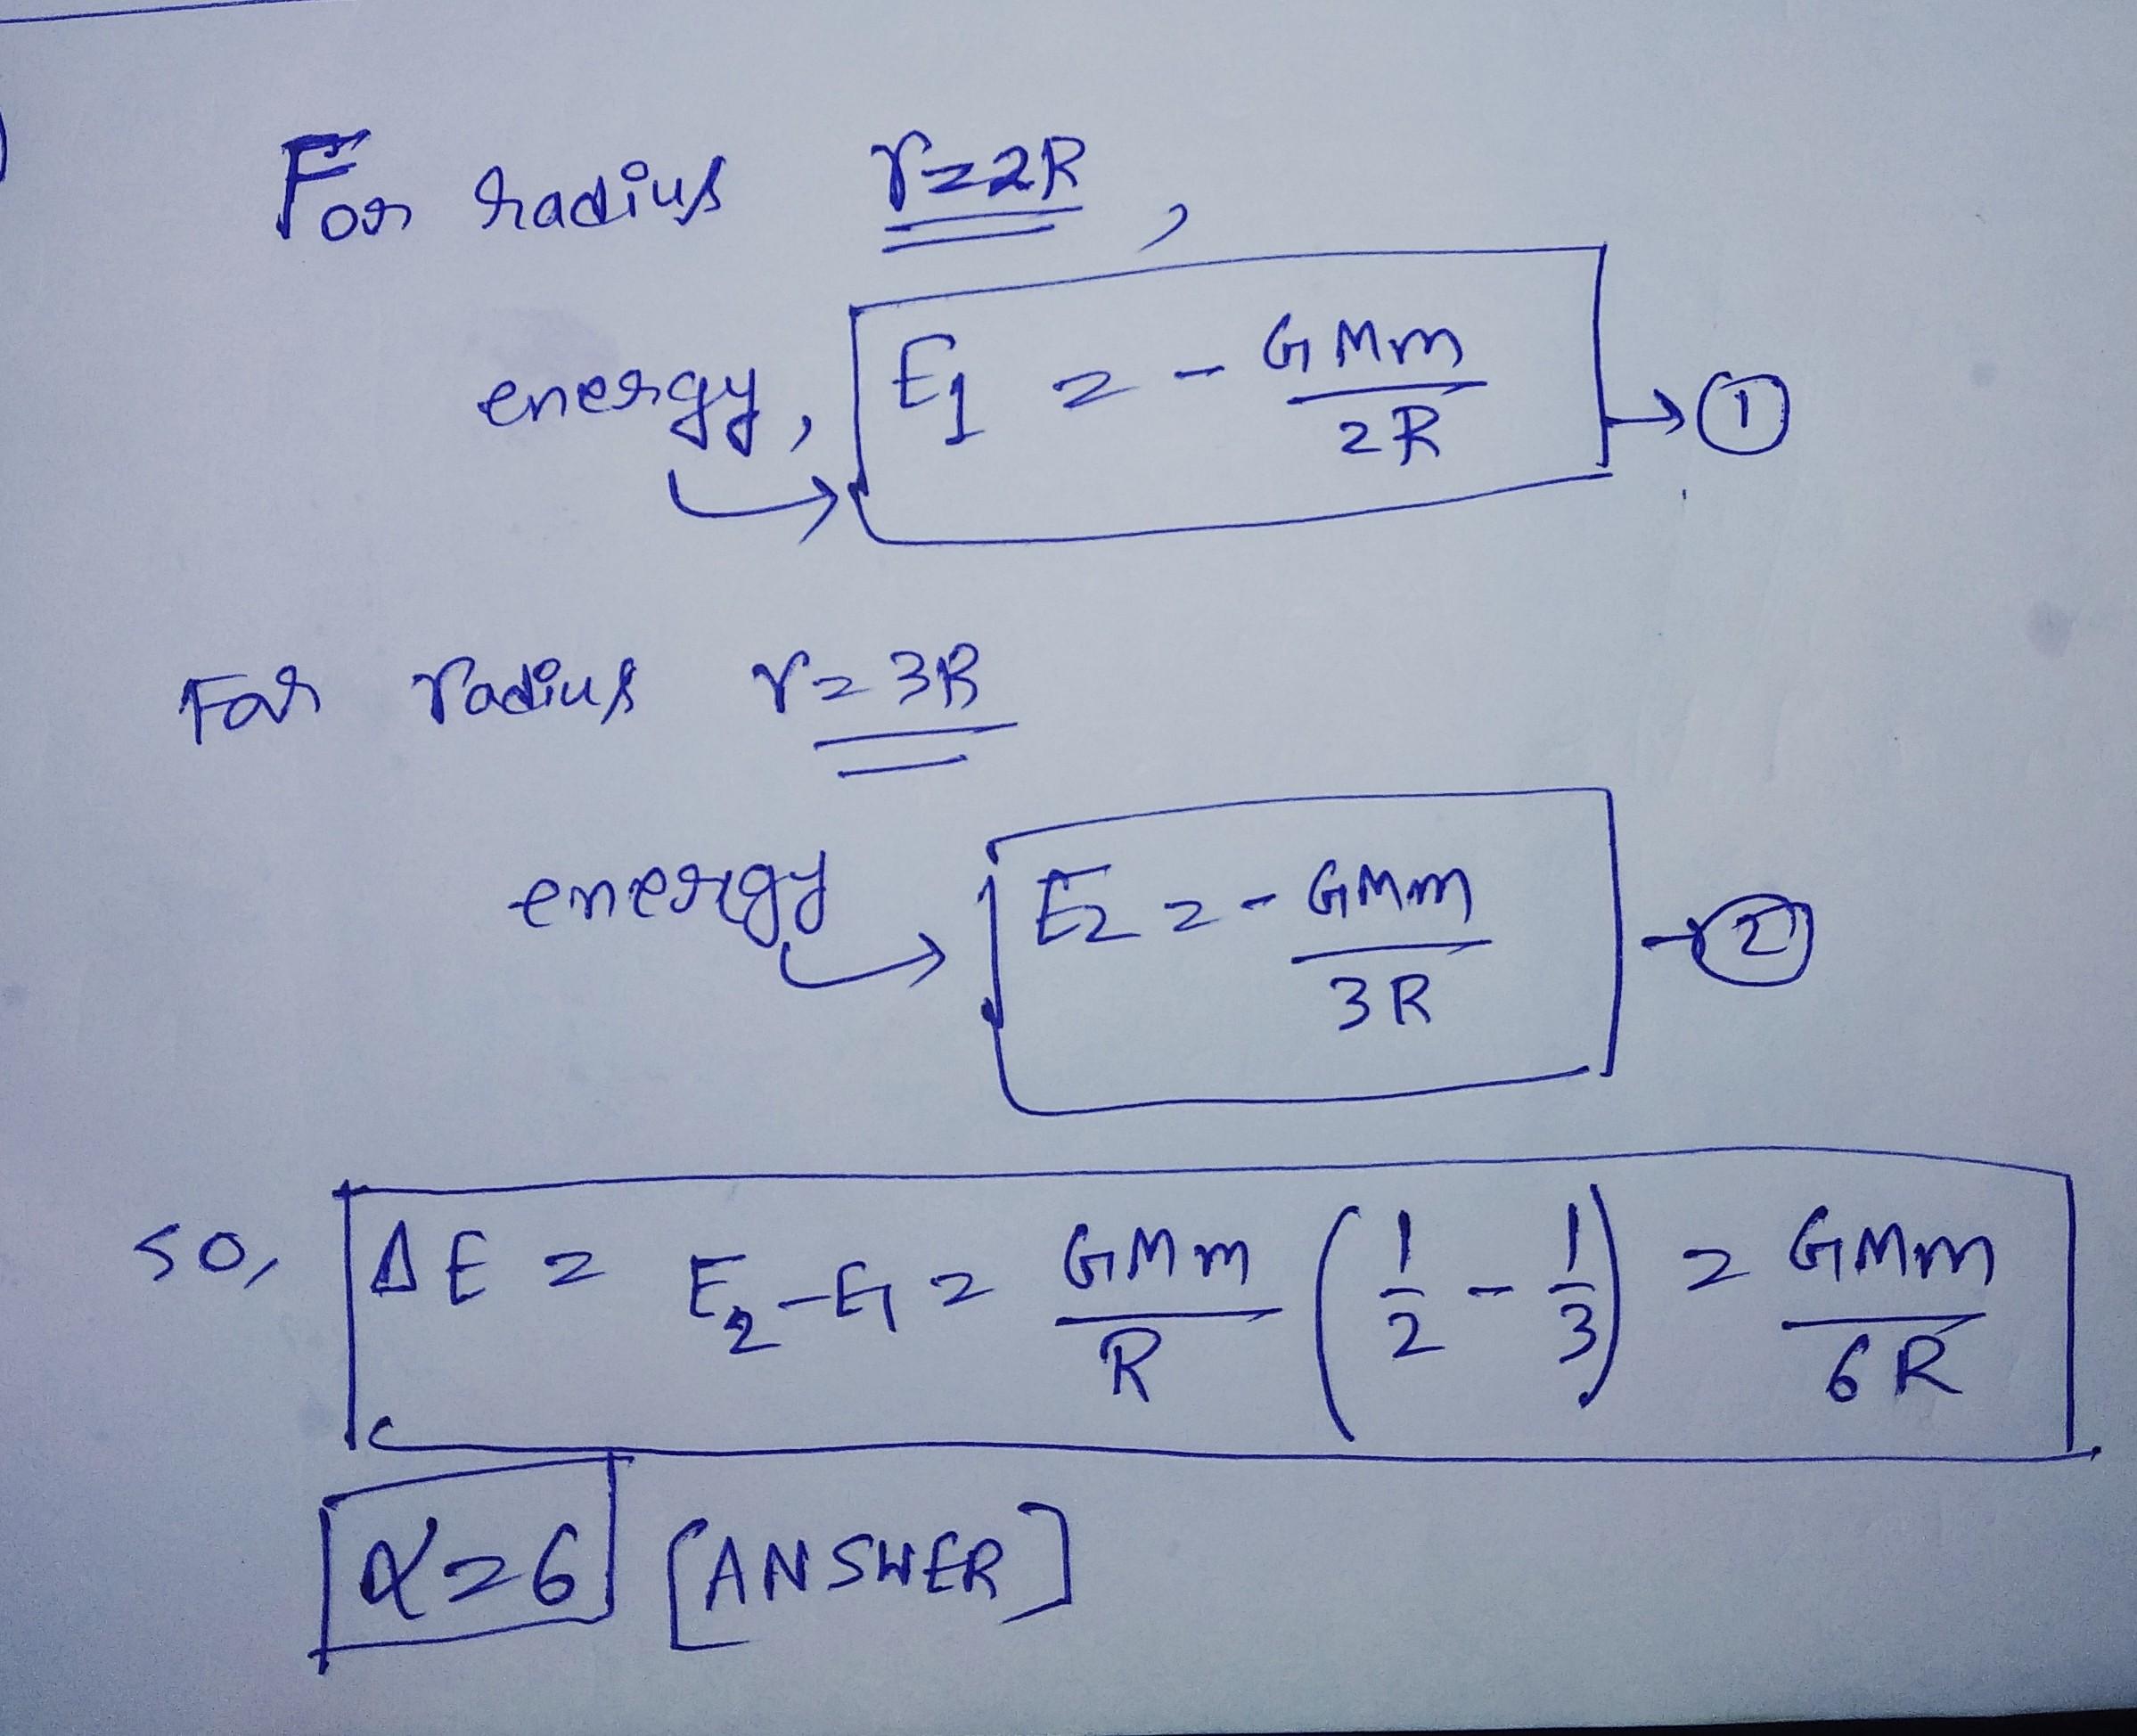 For radius r=2R,
energy, E1 = - GMm/2R → ①
For radius r=3R
energy → E2 = - GMm/3R → ②
so, ΔE = E2-E1 = GMm/R (1/2 - 1/3) = GMm/6R
α=6 [ANSWER]